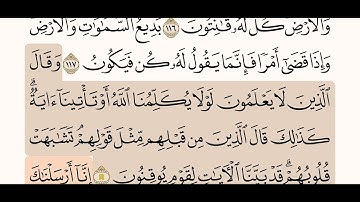 وَٱلْأَرْضِ كُلٌّ لَّهُۥ قَٰنِتُونَ ١١٦ بَدِيعُ ٱلسَّمَٰوَٰتِ وَٱلْأَرْضِ
وَإِذَا قَضَىٰٓ أَمْرًا فَإِنَّمَا يَقُولُ لَهُۥ كُن فَيَكُونُ ١١٧ وَقَالَ
ٱلَّذِينَ لَا يَعْلَمُونَ لَوْلَا يُكَلِّمُنَا ٱللَّهُ أَوْ تَأْتِينَآ ءَايَةٌ ۗ
كَذَٰلِكَ قَالَ ٱلَّذِينَ مِن قَبْلِهِم مِّثْلَ قَوْلِهِمْ ۘ تَشَٰبَهَتْ
قُلُوبُهُمْ ۗ قَدْ بَيَّنَّا ٱلْءَايَٰتِ لِقَوْمٍ يُوقِنُونَ إِنَّآ أَرْسَلْنَٰكَ